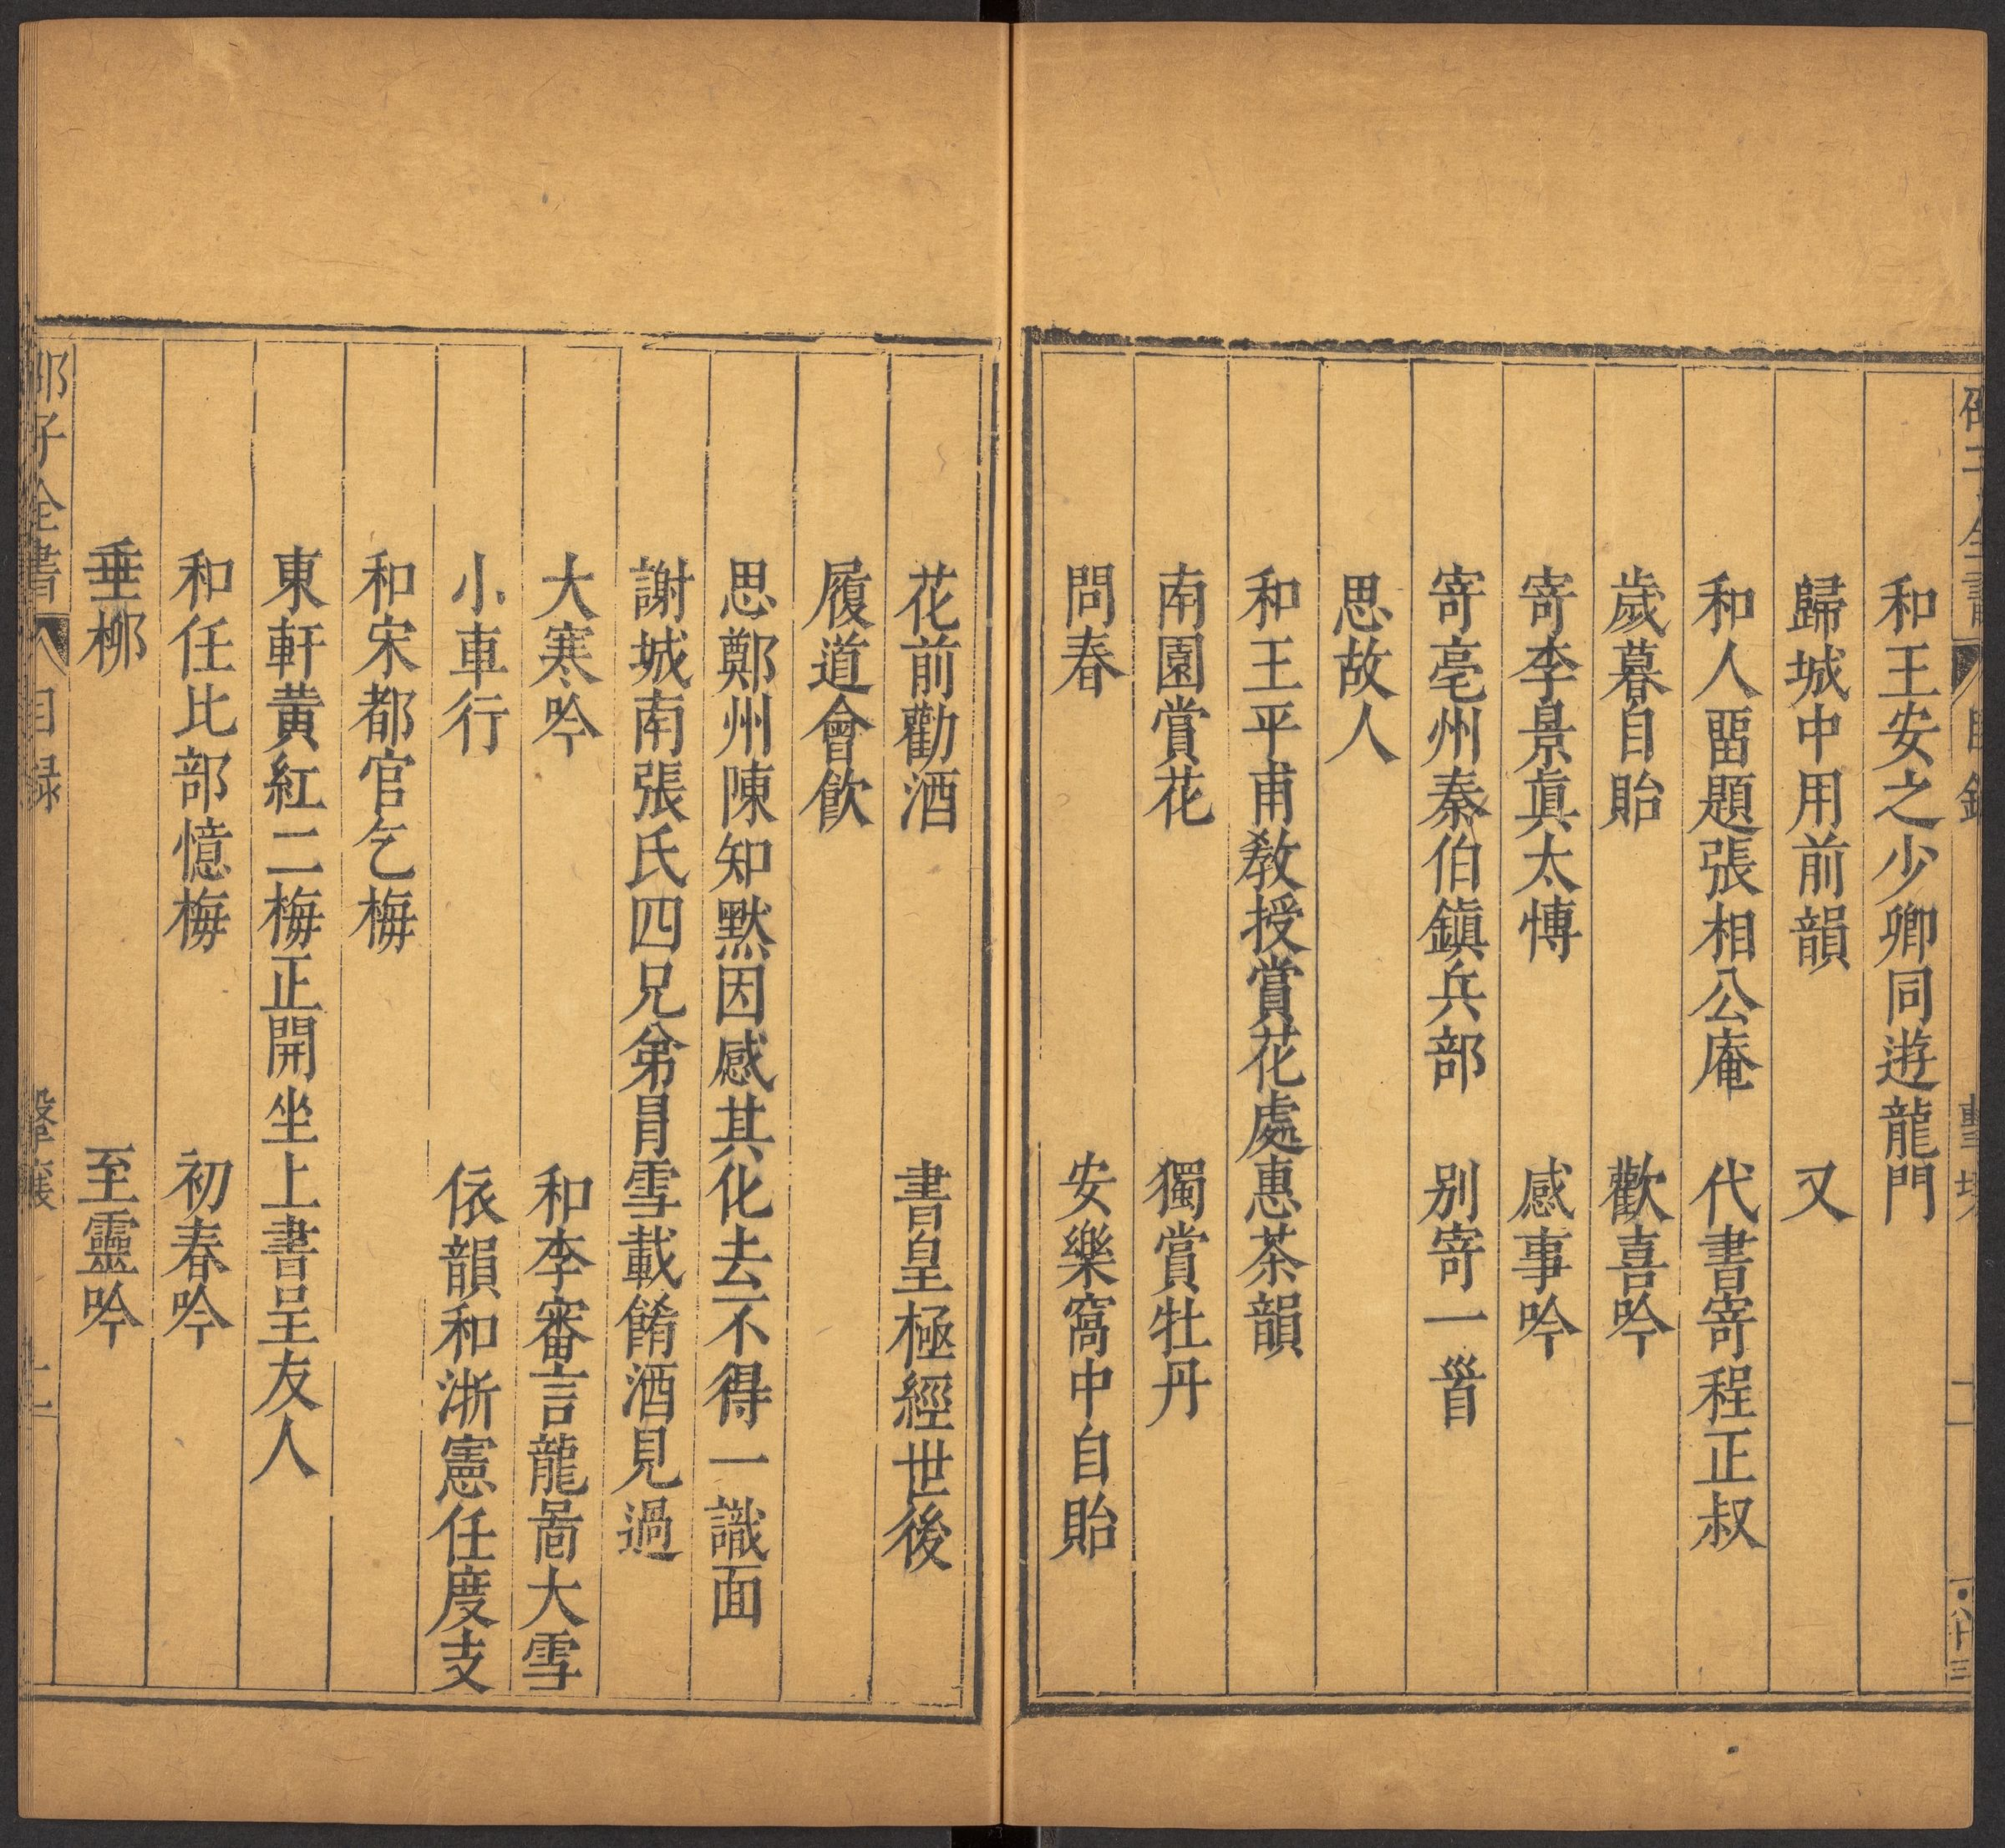 和王安之少卿同遊龍門
歸城中用前韻　又
和人畱題張相公庵　代書寄程正叔
歲暮自貽　歡喜吟
寄李景眞太慱　感事吟
寄亳州秦伯鎭兵部　别寄一首
思故人
和王平甫敎授賞花處惠茶韻
南園賞花　獨賞牡丹
問春　安樂窩中自貽
花前勸酒　書皇極經世後
履道會飲
思鄭州陳知黙因感其化去不得一識面
謝城南張氏四兄弟冐雪載餚酒見過
大寒吟　和李審言龍啚大雪
小車行　依韻和浙憲任度支
和宋都官乞梅
東軒黄紅二梅正開坐上書呈友人
和任比部憶梅　初春吟
垂桺　至靈吟
邵子全書　目録　擊壤